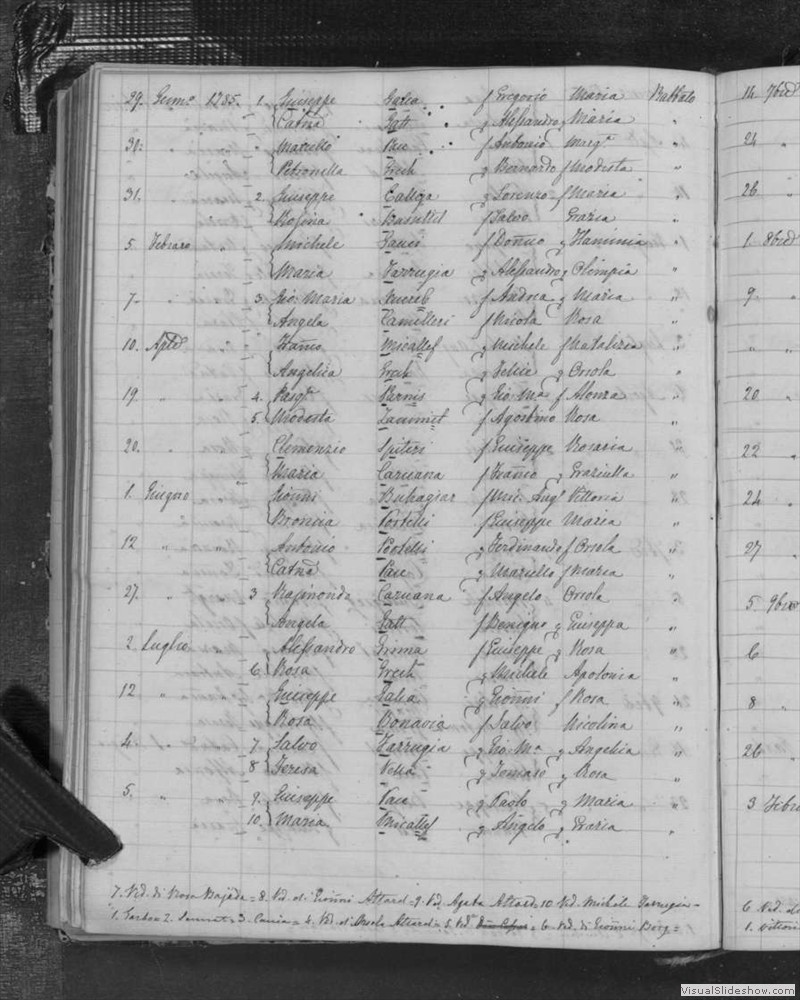 29. Genno 1785. 1. Giuseppe Galea f Gregorio Maria Rabbato 14. 7bre
Catna Gatt q Alessandro q Maria "
31. " Marcello Pace f Antonio Marga " 24 "
Petronella Grech q Bernardo f Modesta "
31. " 2. Giuseppe Calleja q Lorenzo f Maria " 26. "
Rosina Busuttil f Salvo Grazia "
5. Febraro " Michele f q Flaminia " 1. 8bre
Maria Farrugia q Alessandro q Olimpia "
7. " 3. Gio: Maria f Andrea q Maria " 9. "
Angela Camilleri f Nicola Rosa "
10. Aple " Micallef q Michele f Natalizia " " "
Angelica Grech q Felice q Orsola "
19. " " 4. Pasqe Pernis q Gio: Ma f Alonza " 20. "
5. Modesta Zammit f Agostino Rosa "
20. " Clemenzio Spiteri f Giuseppe Rosaria " 22 "
Maria Caruana f Franco q Graziulla "
1. Giugno Gionni Buhagiar f Mic: Angl Vittoria " 24 "
Bronia Portelli f Giuseppe Maria "
12 " " Antonio Portelli q Ferdinando f Orsola " 27 "
Catna Pace q Marcello f Maria "
27. " 3 Raimondo Caruana f Angelo Orsola " 5 9bre
Angela Gatt f Benigno q Giuseppa "
2. Luglio Alessandro Grima f Giuseppe q Rosa " 6 "
6. Rosa Grech q Michele Apolonia "
12 " Giuseppe Galea q Gionni f Rosa " 8 "
Rosa Bonavia f Salvo Nicolina "
4. " 7. Salvo Farrugia q Gio: Ma q Angelica " 26 "
8 Teresa Vella q Tomaso q Rosa "
5. " 9. Giuseppe Pace q Paolo q Maria " 3 Xbre
10. Maria Micallef q Angelo q Grazia "
7. Ved. di Rosa Bajada = 8. Ved. di Gionni Attard = 9. Ved. Agata Attard = 10. Ved. Michele Farrugia = 6. Ved. di
1. Xaghra 2. Sannat = 3. Caccia = 4. Ved. di Orsola Attard = 5. Ved. = 6. Ved. di Gionni Borg = 1. Vittoria
VisualSlideshow.com